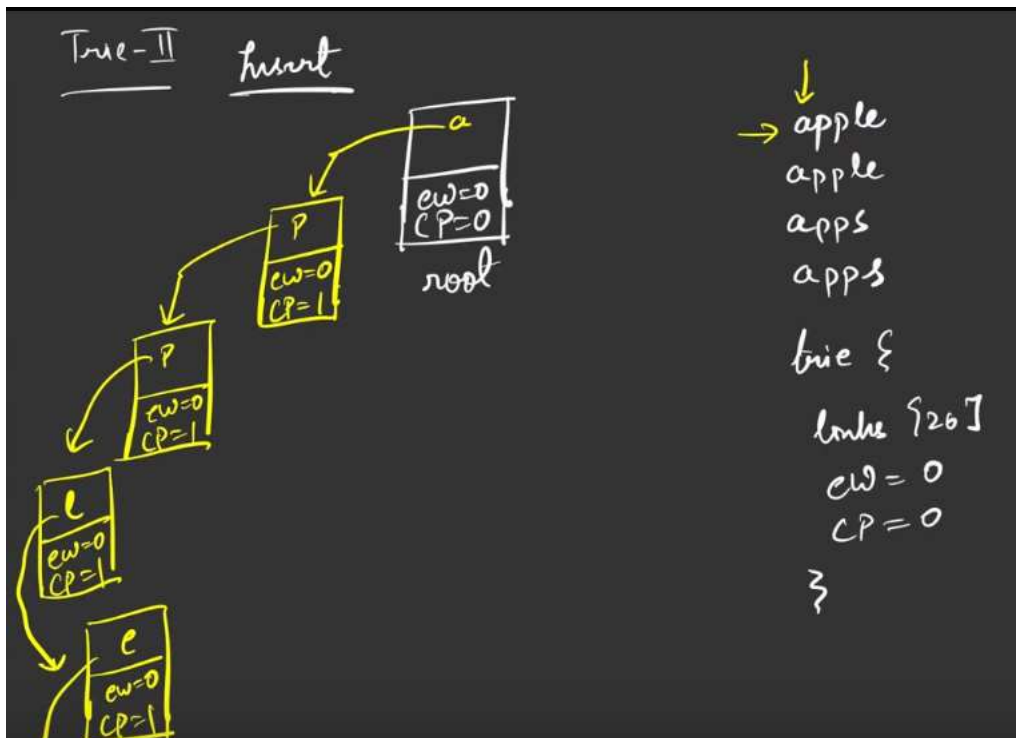 Trie-II Insert
a
ew=0
CP=0
root
P
ew=0
CP=1
P
ew=0
CP=1
l
ew=0
CP=1
e
ew=0
CP=1
→ apple
apple
apps
apps
trie {
links [26]
ew = 0
CP = 0
}